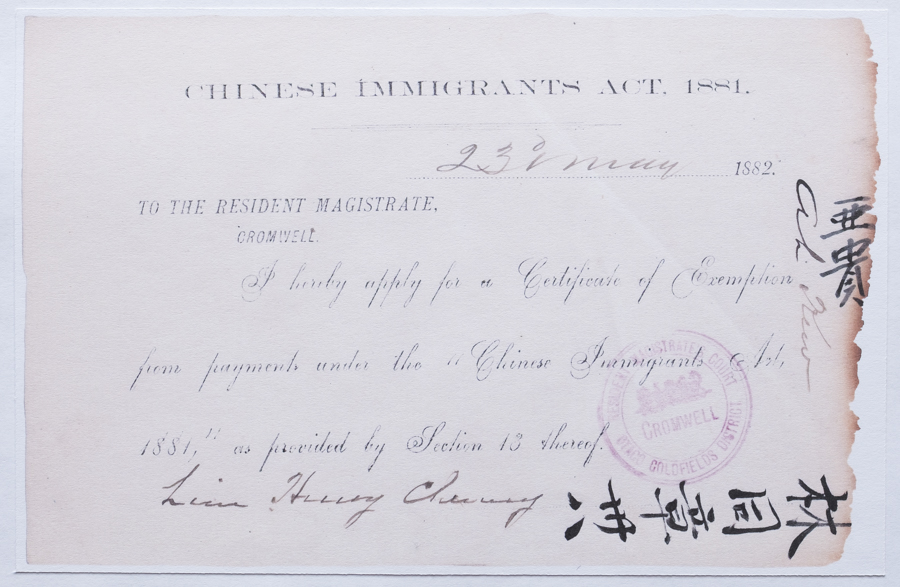 CHINESE IMMIGRANTS ACT, 1881.
23d May 1882.
TO THE RESIDENT MAGISTRATE,
CROMWELL.
I hereby apply for a Certificate of Exemption
from payment under the "Chinese Immigrants Act,
1881," as provided by Section 13 thereof.
Lim Hung
RESIDENT MAGISTRATE'S COURT
CROMWELL
OTAGO GOLDFIELDS DISTRICT
亞貴
Ah Kew
林同章卅八